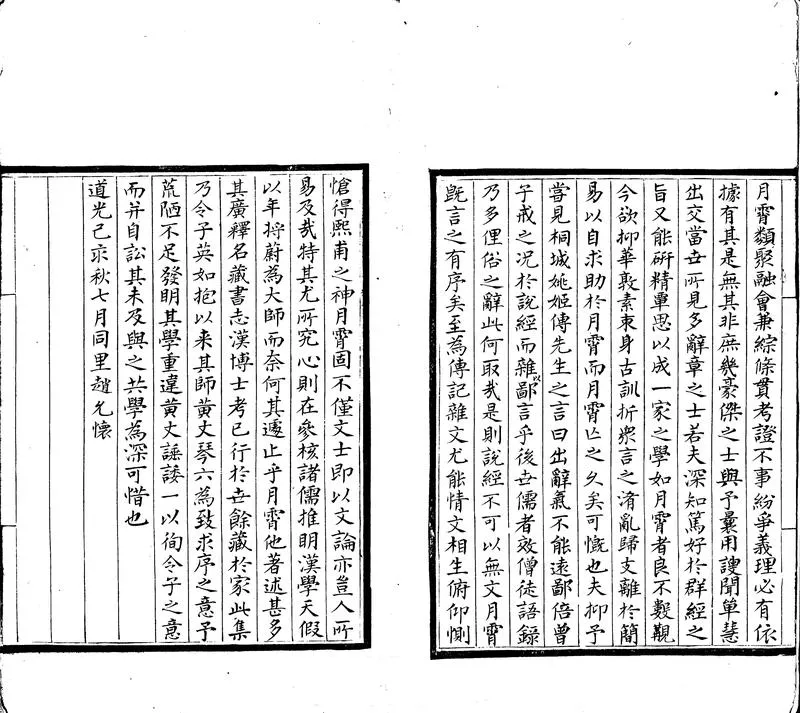 月霄類聚融會兼綜條貫考證不事紛爭義理必有依
據有其是無其非庶幾豪傑之士與予曩用謏聞單慧
出交當世所見多辭章之士若夫深知篤好於群經之
旨又能研精覃思以成一家之學如月霄者良不數覯
今欲抑華敦素束身古訓折衆言之淆亂歸支離於簡
易以自求助於月霄而月霄亡之久矣可慨也夫抑予
嘗見桐城姚姬傳先生之言曰出辭氣不能遠鄙倍曾
子戒之况於說經而雜以鄙言乎後世儒者效僧徒語録
乃多俚俗之辭此何取哉是則說經不可以無文月霄
旣言之有序矣至為傳記雜文尤能情文相生俯仰惻
愴得熙甫之神月霄固不僅文士即以文論亦豈人所
易及哉特其尤所究心則在參核諸儒推明漢學天假
以年將蔚為大師而奈何其遽止乎月霄他著述甚多
其廣釋名藏書志漢博士考已行於世餘藏於家此集
乃令子英如抱以来其師黄丈琴六為致求序之意予
荒陋不足發明其學重違黄丈諈諉一以徇令子之意
而并自訟其未及與之共學為深可惜也
道光己亥秋七月同里趙允懷